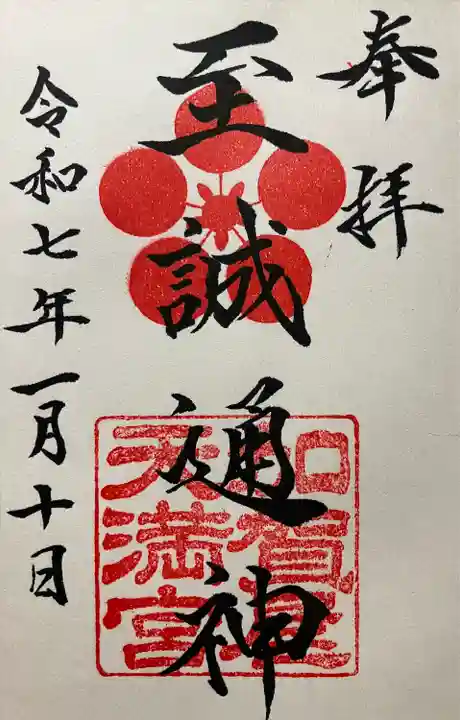 奉拝
至誠通神
加賀星
天満宮
令和七年一月十日